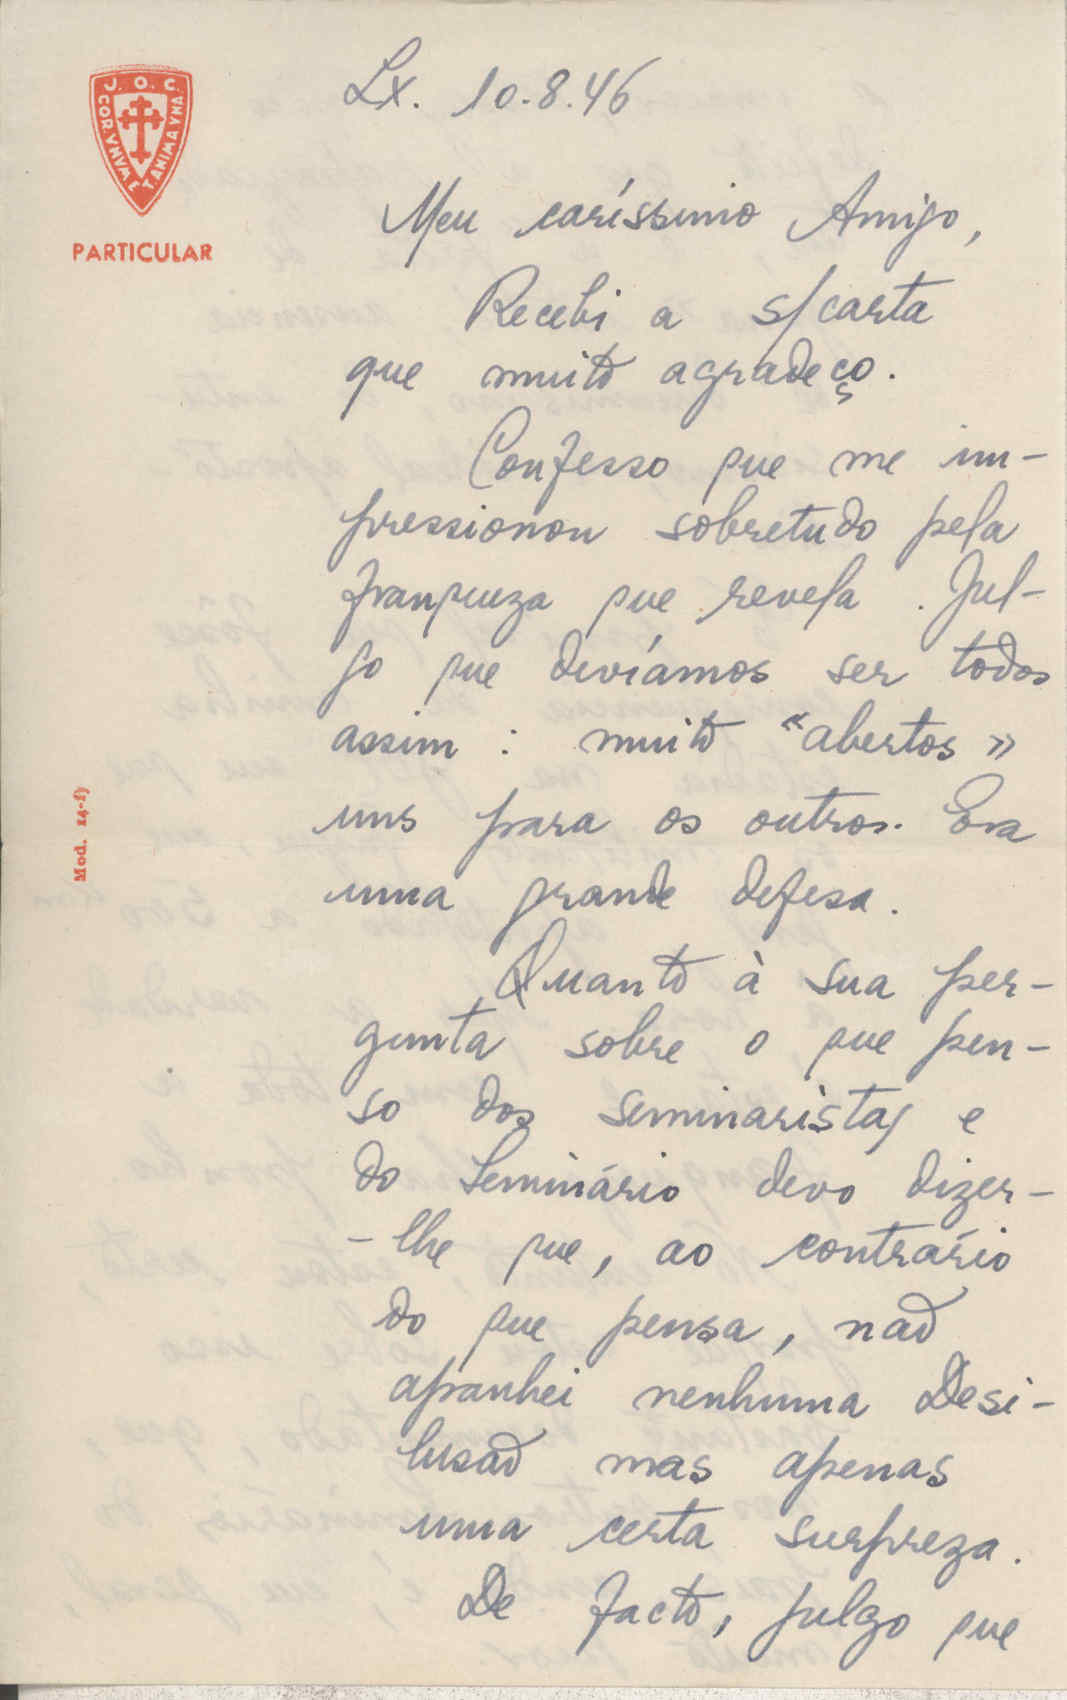 J. O. C.
COR VNVM ET ANIMA VNA
PARTICULAR
Lx. 10.8.46
Meu caríssimo Amigo,
Recebi a s/carta
que muito agradeço.
Confesso que me im-
pressionou sobretudo pela
franqueza que revela. Jul-
go que devíamos ser todos
assim: muito "abertos»
uns para os outros. Era
uma grande defesa.
Quanto à sua per-
gunta sobre o que pen-
so dos seminaristas e
do Seminário devo dizer-
-lhe que, ao contrário
do que pensa, não
apanhei nenhuma desi-
lusão mas apenas
uma certa surpreza.
De facto, julgo que
Mod. 14-f)